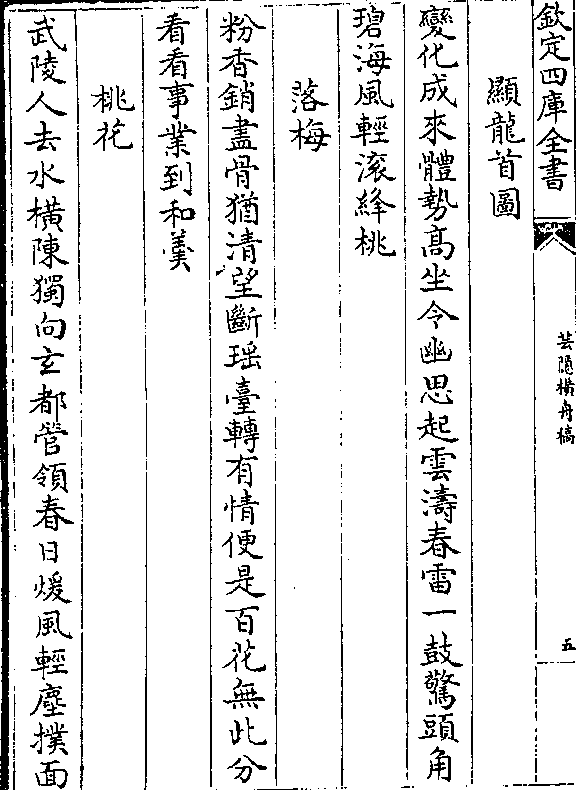 欽定四庫全書
芸隱橫舟稿
五
顯龍首圖
變化成來體勢髙坐令幽思起雲濤春雷一鼓驚頭角
碧海風輕滚絳桃
落梅
粉香銷盡骨猶清望斷瑶臺轉有情便是百花無此分
看看事業到和羹
桃花
武陵人去水横陳獨向玄都管領春日煖風輕塵撲面